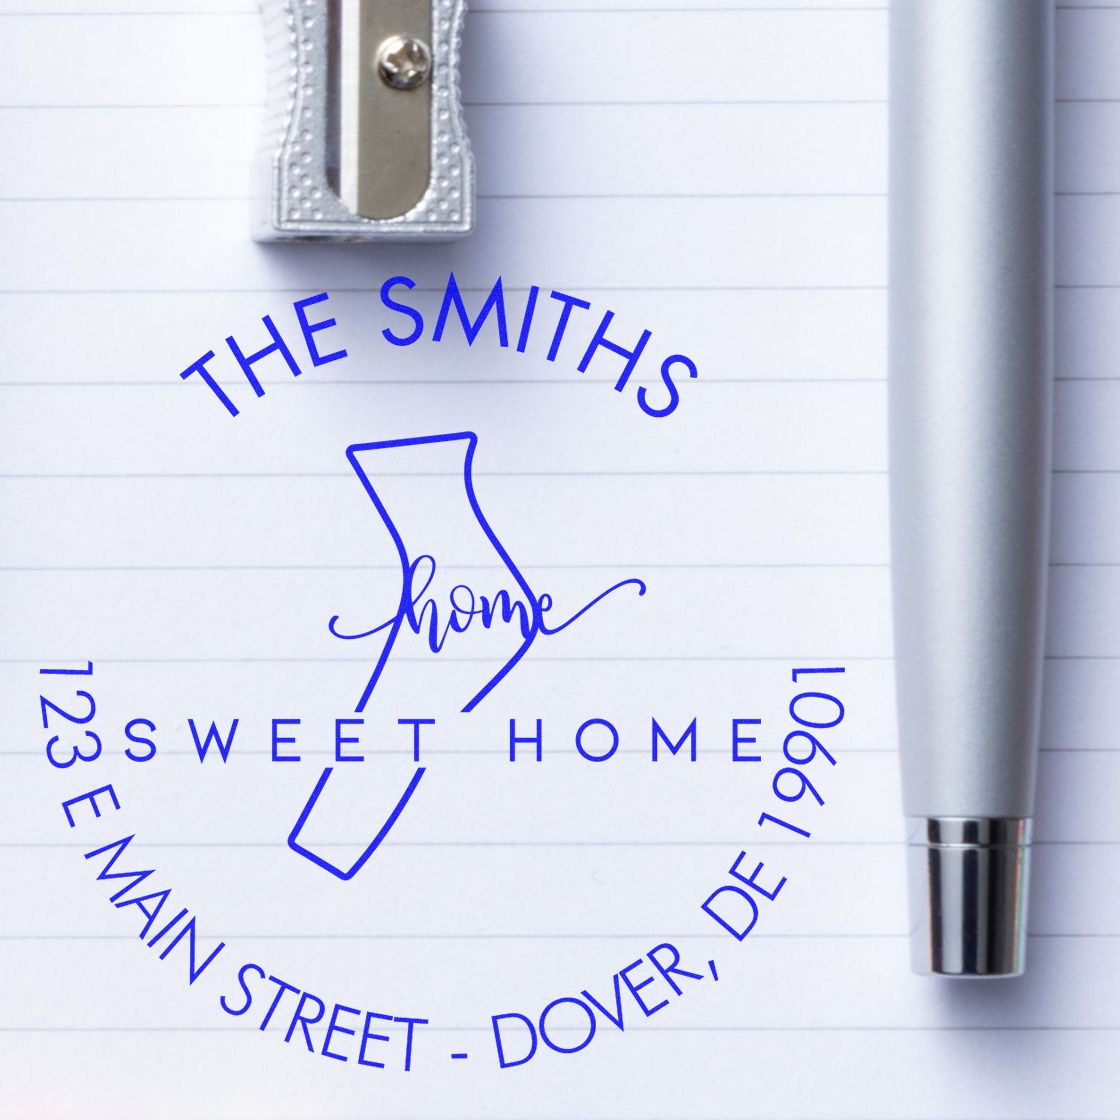 THE SMITHS
home
SWEET HOME
123 E MAIN STREET - DOVER, DE 19901